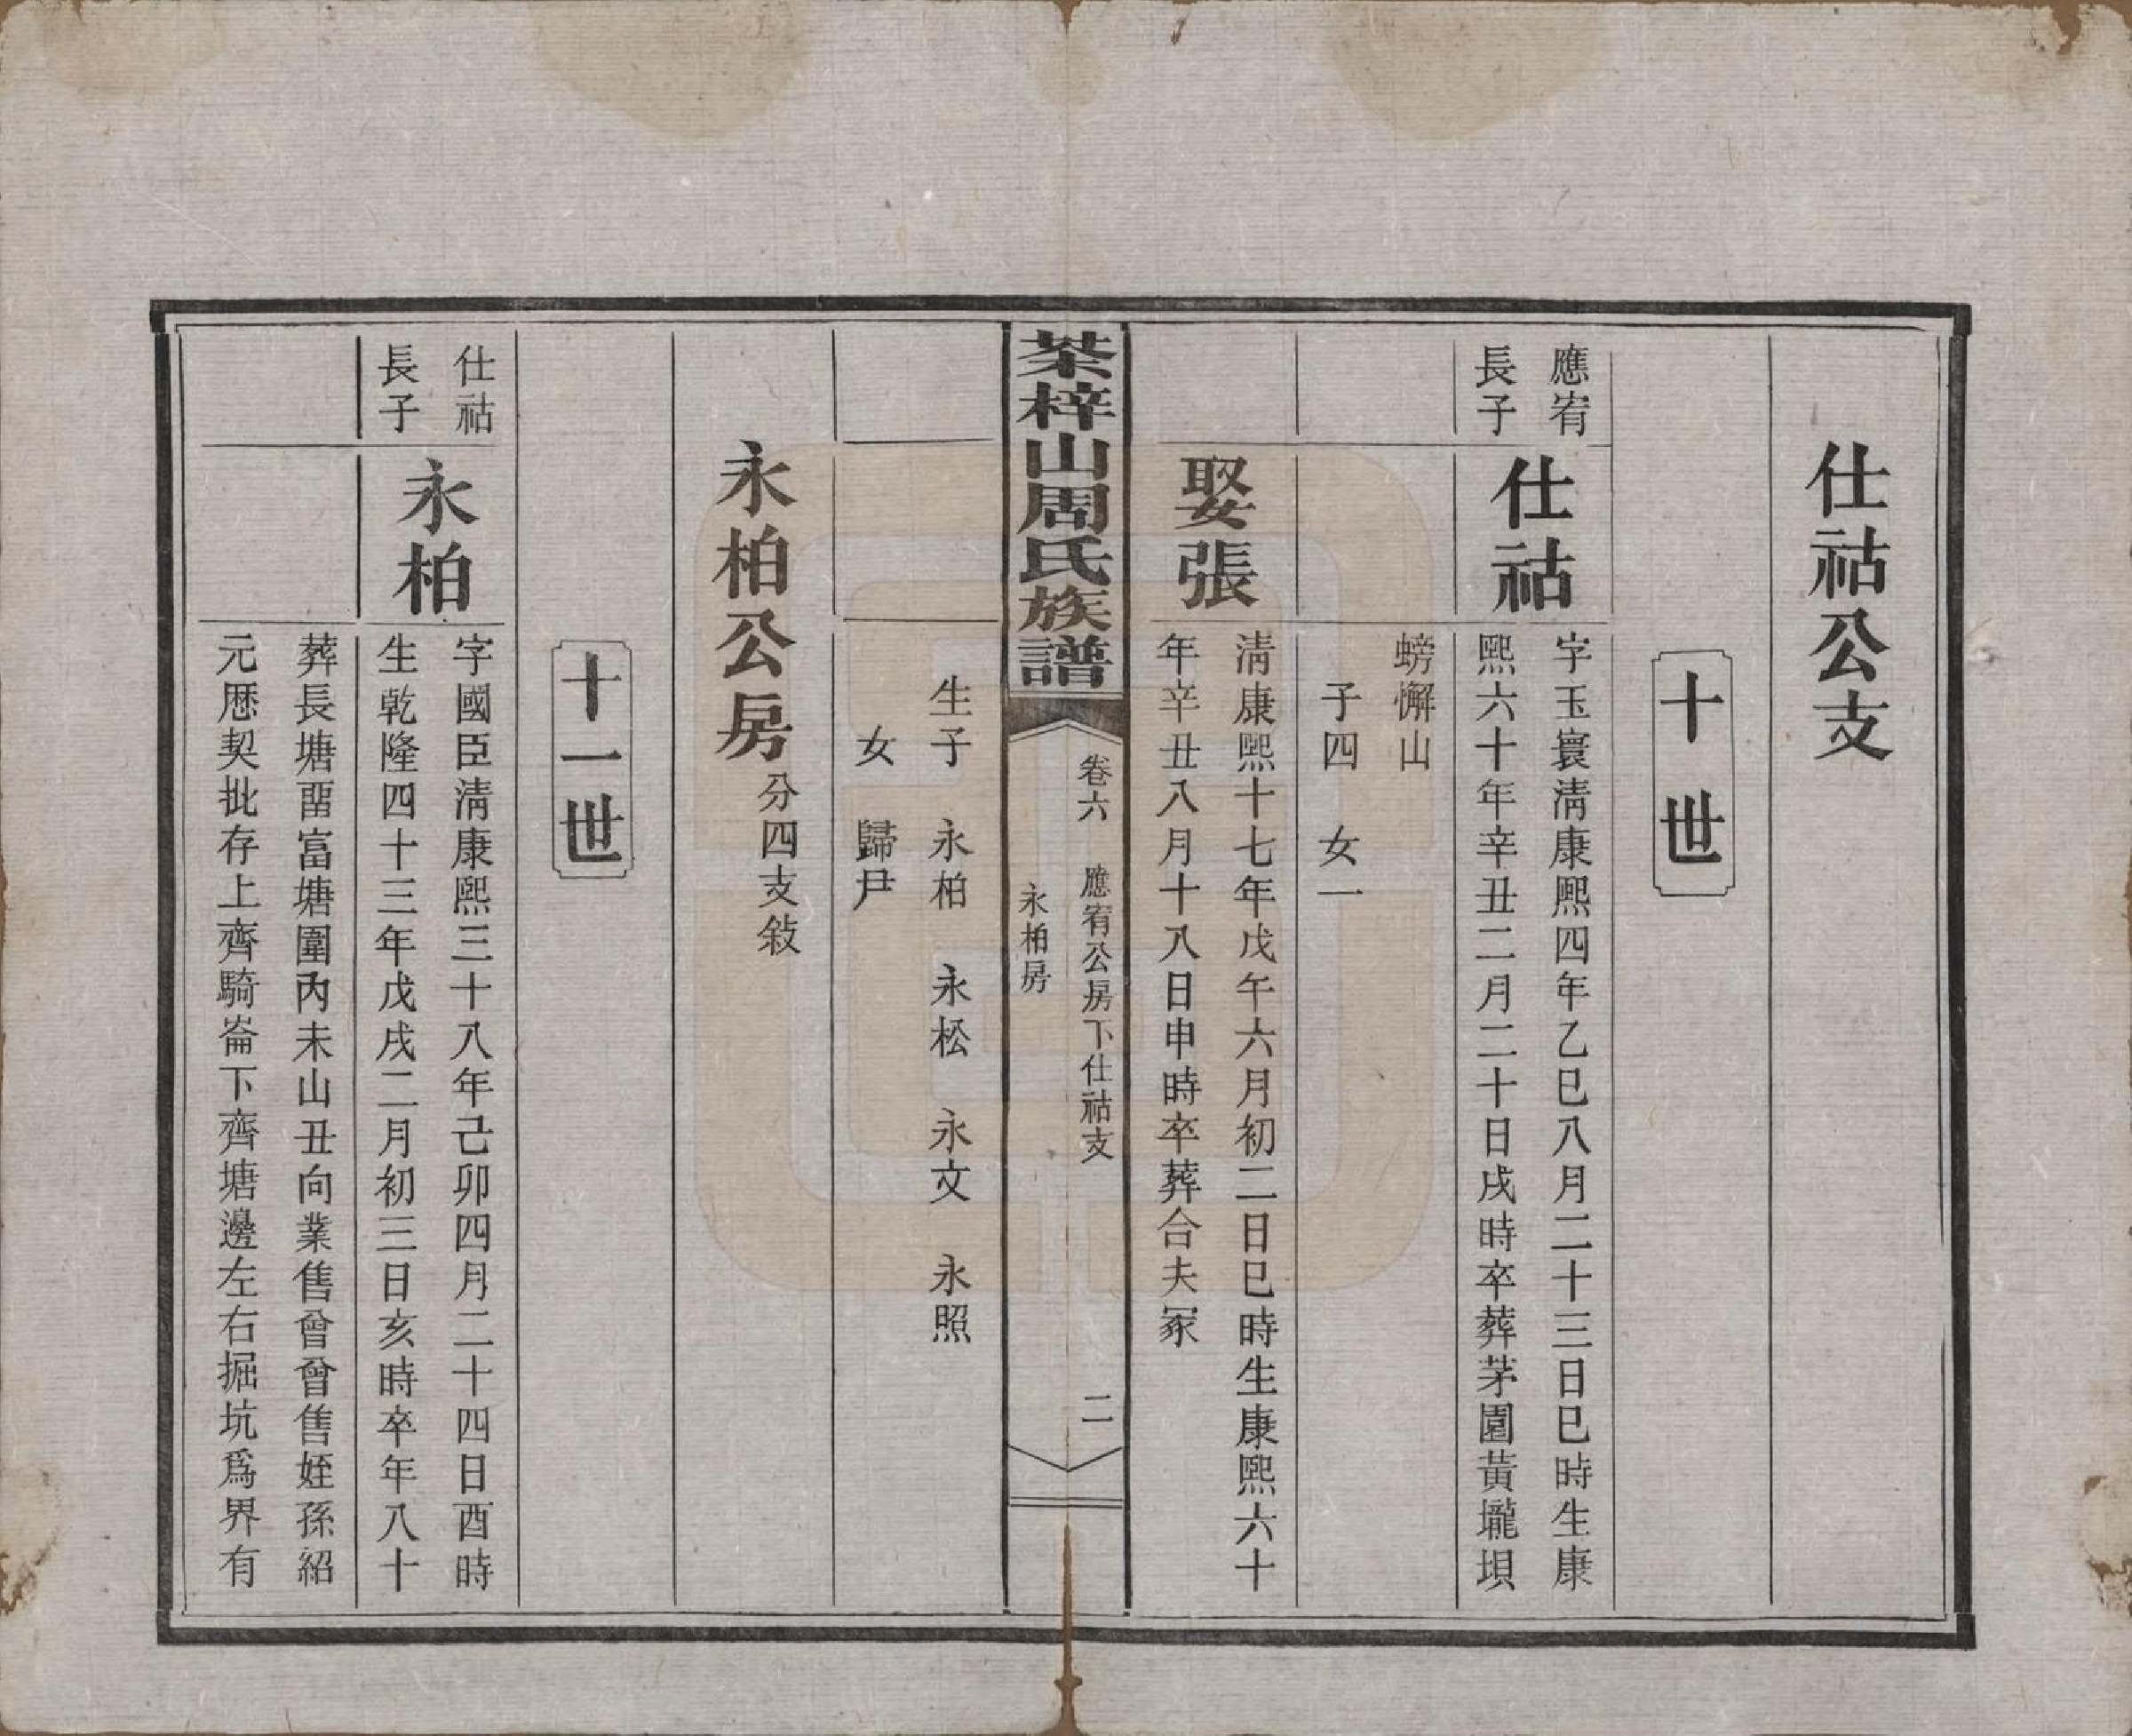 仕祜公支
十世
應宥
長子
仕祜
字玉寰淸康熙四年乙巳八月二十三日巳時生康
熙六十年辛丑二月二十日戌時卒葬茅園黃壠垻
螃懈山
子四 女一
娶張
淸康熙十七年戊午六月初二日巳時生康熙六十
年辛丑八月十八日申時卒葬合夫冢
茶梓山周氏族譜
卷六 應宥公房下仕祜支
永柏房
二
生子 永柏 永松 永文 永照
女 歸尹
永柏公房
分四支敍
十一世
仕祜
長子
永柏
字國臣淸康熙三十八年己卯四月二十四日酉時
生乾隆四十三年戊戌二月初三日亥時卒年八十
葬長塘畱富塘圍內未山丑向業售曾曾售姪孫紹
元歷契批存上齊騎崙下齊塘邊左右掘坑爲界有